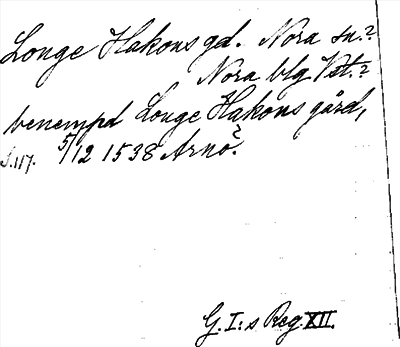 Longe Hakons gd. Nora sn.?
Nora blg Vst.?
benempd Longe Hakons gård,
S. 117. 5/12 1538 Arnö.
G. I:s Reg. XII.